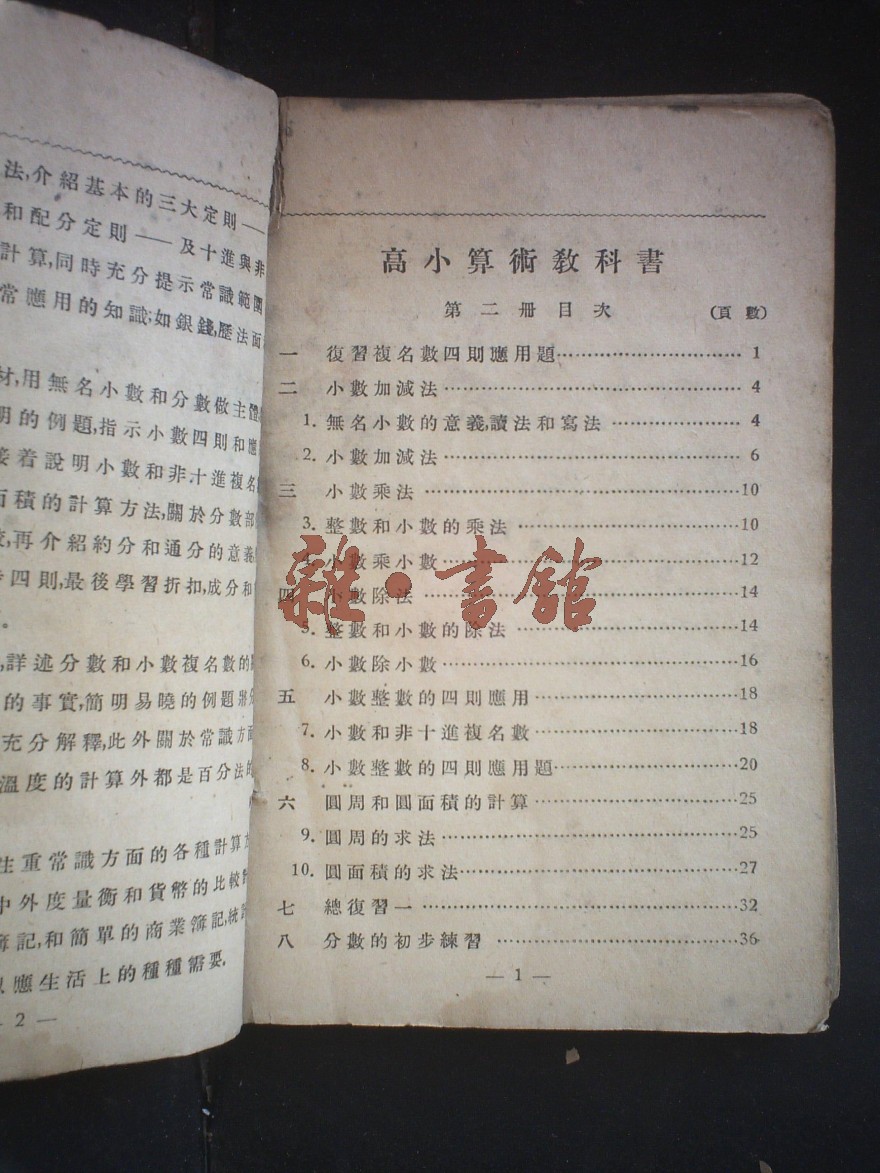 法,介紹基本的三大定則——
和配分定則——及十進與非
計算,同時充分提示常識範圍
常應用的知識;如銀錢,歷法面
材,用無名小數和分數做主體
明的例題,指示小數四則和應
接着說明小數和非十進複名
面積的計算方法,關於分數部
再介紹約分和通分的意義
四則,最後學習折扣,成分和
。
,詳述分數和小數複名數的
的事實,簡明易曉的例題將
充分解釋,此外關於常識方面
溫度的計算外都是百分法的
生重常識方面的各種計算方
中外度量衡和貨幣的比較
簿記,和簡單的商業簿記,統
以應生活上的種種需要.
— 2 —
高小算術敎科書
第二冊目次 (頁數)
一 復習複名數四則應用題 1
二 小數加減法 4
1. 無名小數的意義,讀法和寫法 4
2. 小數加減法 6
三 小數乘法 10
3. 整數和小數的乘法 10
小數乘小數 12
四 小數除法 14
5. 整數和小數的除法 14
6. 小數除小數 16
五 小數整數的四則應用 18
7. 小數和非十進複名數 18
8. 小數整數的四則應用題 20
六 圓周和圓面積的計算 25
9. 圓周的求法 25
10. 圓面積的求法 27
七 總復習一 32
八 分數的初步練習 36
— 1 —
雜·書館